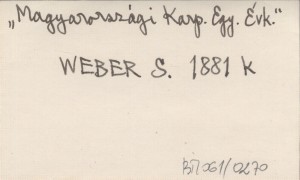 „Magyarországi Karp. Egy. Évk.“
WEBER S. 1881 K
BΠ061/0270